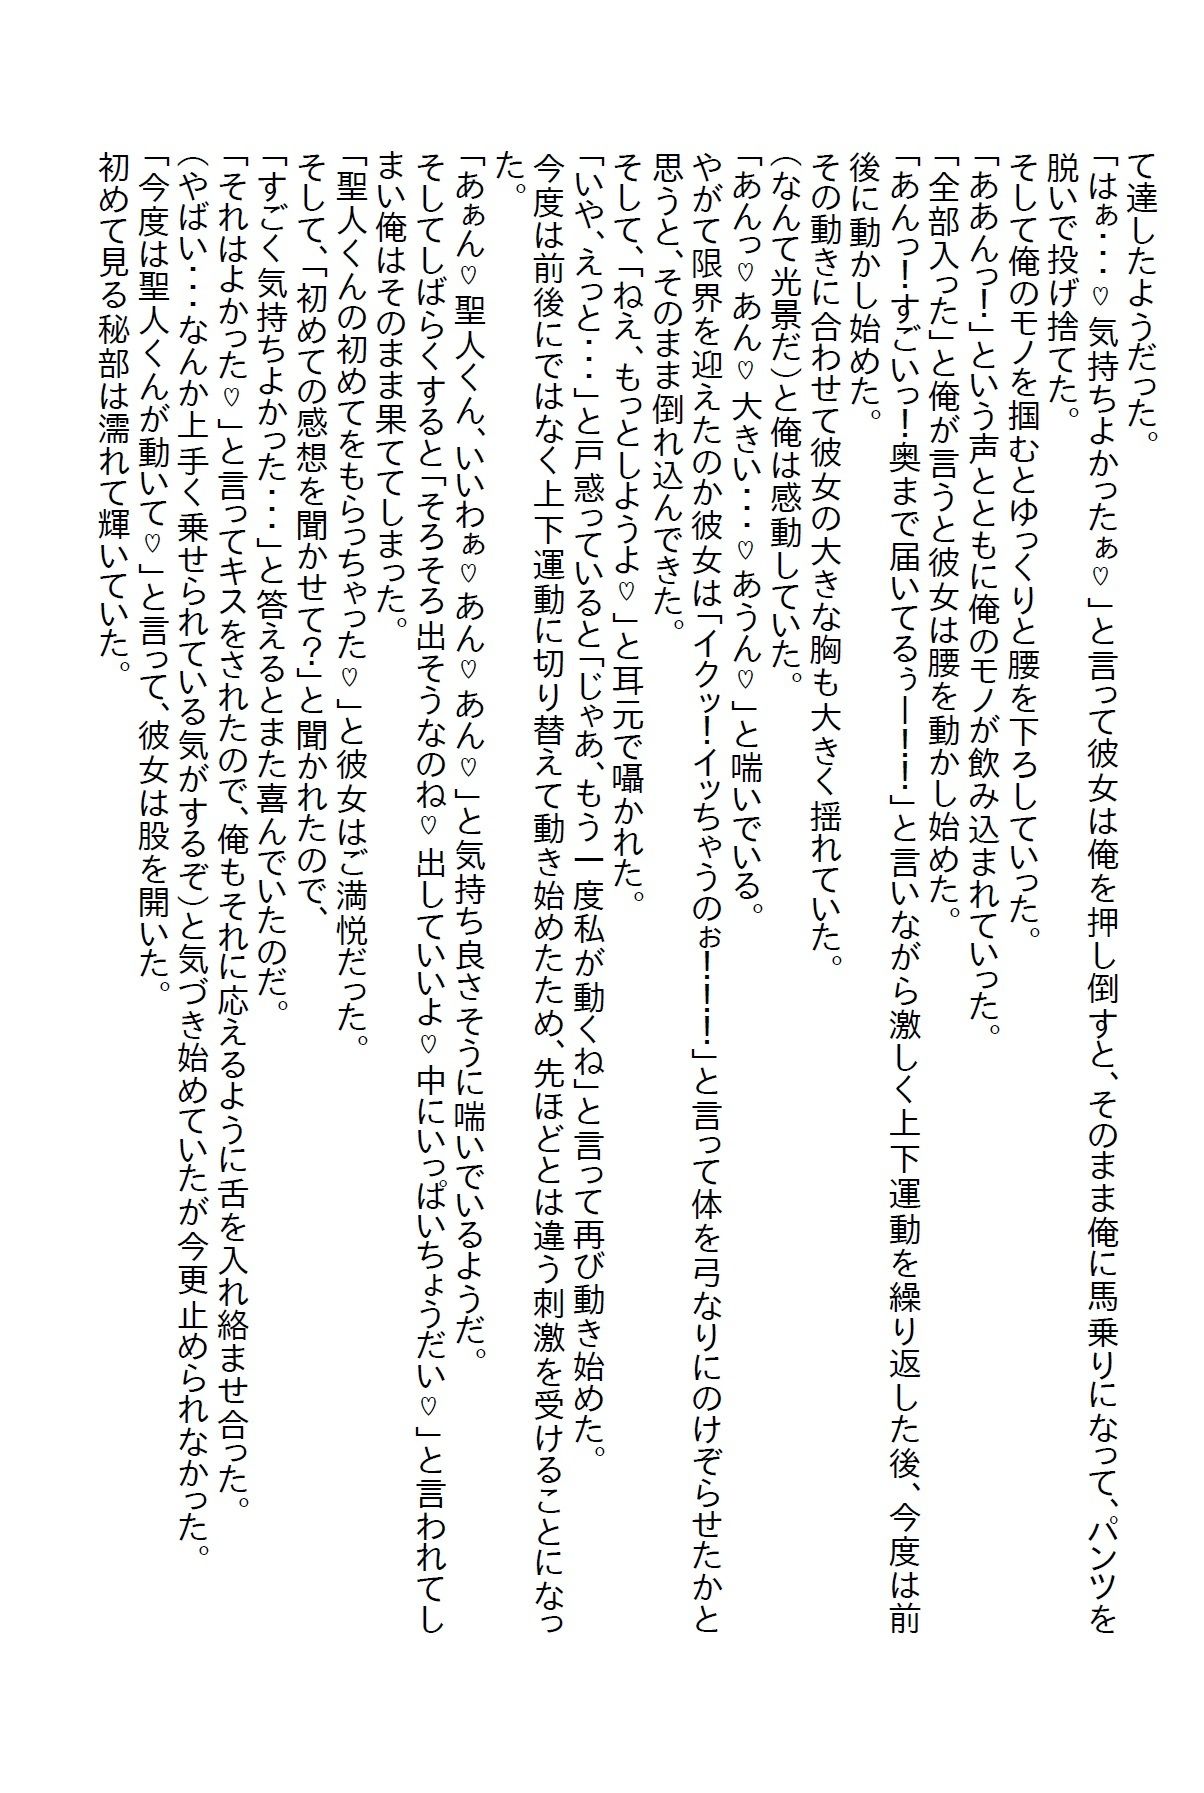 て達したようだった。
「はぁ・・・♡気持ちよかったぁ♡」と言って彼女は俺を押し倒すと、そのまま俺に馬乗りになって、パンツを
脱いで投げ捨てた。
そして俺のモノを掴むとゆっくりと腰を下ろしていった。
「ああんっ！」という声とともに俺のモノが飲み込まれていった。
「全部入った」と俺が言うと彼女は腰を動かし始めた。
「あんっ！すごいっ！奥まで届いてるぅー！！」と言いながら激しく上下運動を繰り返した後、今度は前
後に動かし始めた。
その動きに合わせて彼女の大きな胸も大きく揺れていた。
（なんて光景だ）と俺は感動していた。
「あんっ♡あん♡大きい・・・♡あうん♡」と喘いでいる。
やがて限界を迎えたのか彼女は「イクッ！イッちゃうのぉ！！！」と言って体を弓なりにのけぞらせたかと
思うと、そのまま倒れ込んできた。
そして、「ねえ、もっとしようよ♡」と耳元で囁かれた。
「いや、えっと・・・」と戸惑っていると「じゃあ、もう一度私が動くね」と言って再び動き始めた。
今度は前後にではなく上下運動に切り替えて動き始めたため、先ほどとは違う刺激を受けることになっ
た。
「あぁん♡聖人くん、いいわぁ♡あん♡あん♡」と気持ち良さそうに喘いでいるようだ。
そしてしばらくすると「そろそろ出そうなのね♡出していいよ♡中にいっぱいちょうだい♡」と言われてし
まい俺はそのまま果ててしまった。
「聖人くんの初めてをもらっちゃった♡」と彼女はご満悦だった。
そして、「初めての感想を聞かせて？」と聞かれたので、
「すごく気持ちよかった・・・」と答えるとまた喜んでいたのだ。
「それはよかった♡」と言ってキスをされたので、俺もそれに応えるように舌を入れ絡ませ合った。
（やばい・・・なんか上手く乗せられている気がするぞ）と気づき始めていたが今更止められなかった。
「今度は聖人くんが動いて♡」と言って、彼女は股を開いた。
初めて見る秘部は濡れて輝いていた。